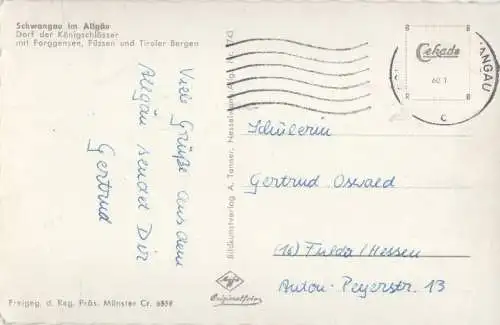 Schwangau im Allgäu
Dorf der Königschlösser
mit Forggensee, Füssen und Tiroler Bergen
Viele Grüße aus dem
Allgäu sendet Dir
Gertrud
Bildkunstverlag A. Tanner, Nesselwang Allg.
Cekade
ANGAU
c
Schülerin
Gertrud Oswald
(16) Fulda/Hessen
Anton-Peyerstr. 13
Agfa
Originalfoto
Freigeg. d. Reg. Präs. Münster Cr. 6858